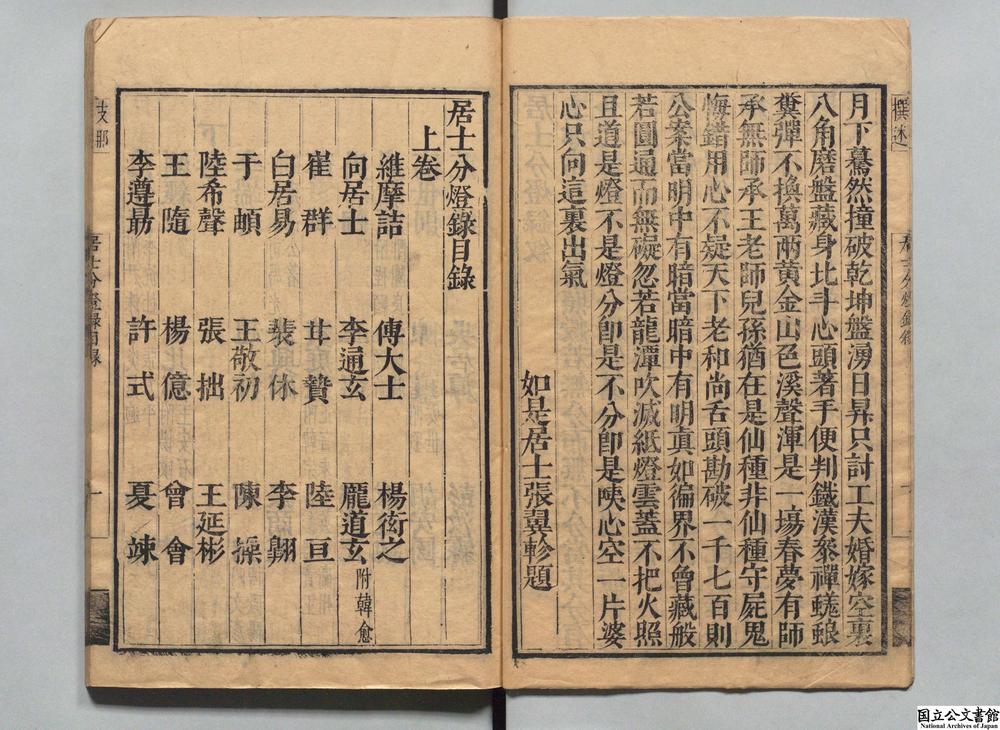 撰述
月下驀然撞破乾坤盤湧日昇只討工夫婚嫁空裏
八角磨盤藏身北斗心頭著手便判鐵漢叅禪蜣蜋
糞彈不換萬兩黃金山色溪聲渾是一場春夢有師
承無師承王老師兒孫猶在是仙種非仙種守屍鬼
悔錯用心不疑天下老和尚舌頭勘破一千七百則
公案當明中有暗當暗中有明真如徧界不曾藏般
若圓通而無礙忽若龍潭吹滅紙燈雲蓋不把火照
且道是燈不是燈分卽是不分卽是咦心空一片婆
心只向這裏出氣
如是居士張翼軫題
居士分燈錄目錄
上卷
維摩詰 傅大士 楊衒之
向居士 李通玄 龐道玄 附韓愈
崔群 甘贄 陸亘
白居易 裴休 李翶
于頔 王敬初 陳操
陸希聲 張拙 王延彬
王隨 楊億 曾會
李遵勗 許式 夏竦
支那
居士分燈錄目錄
一